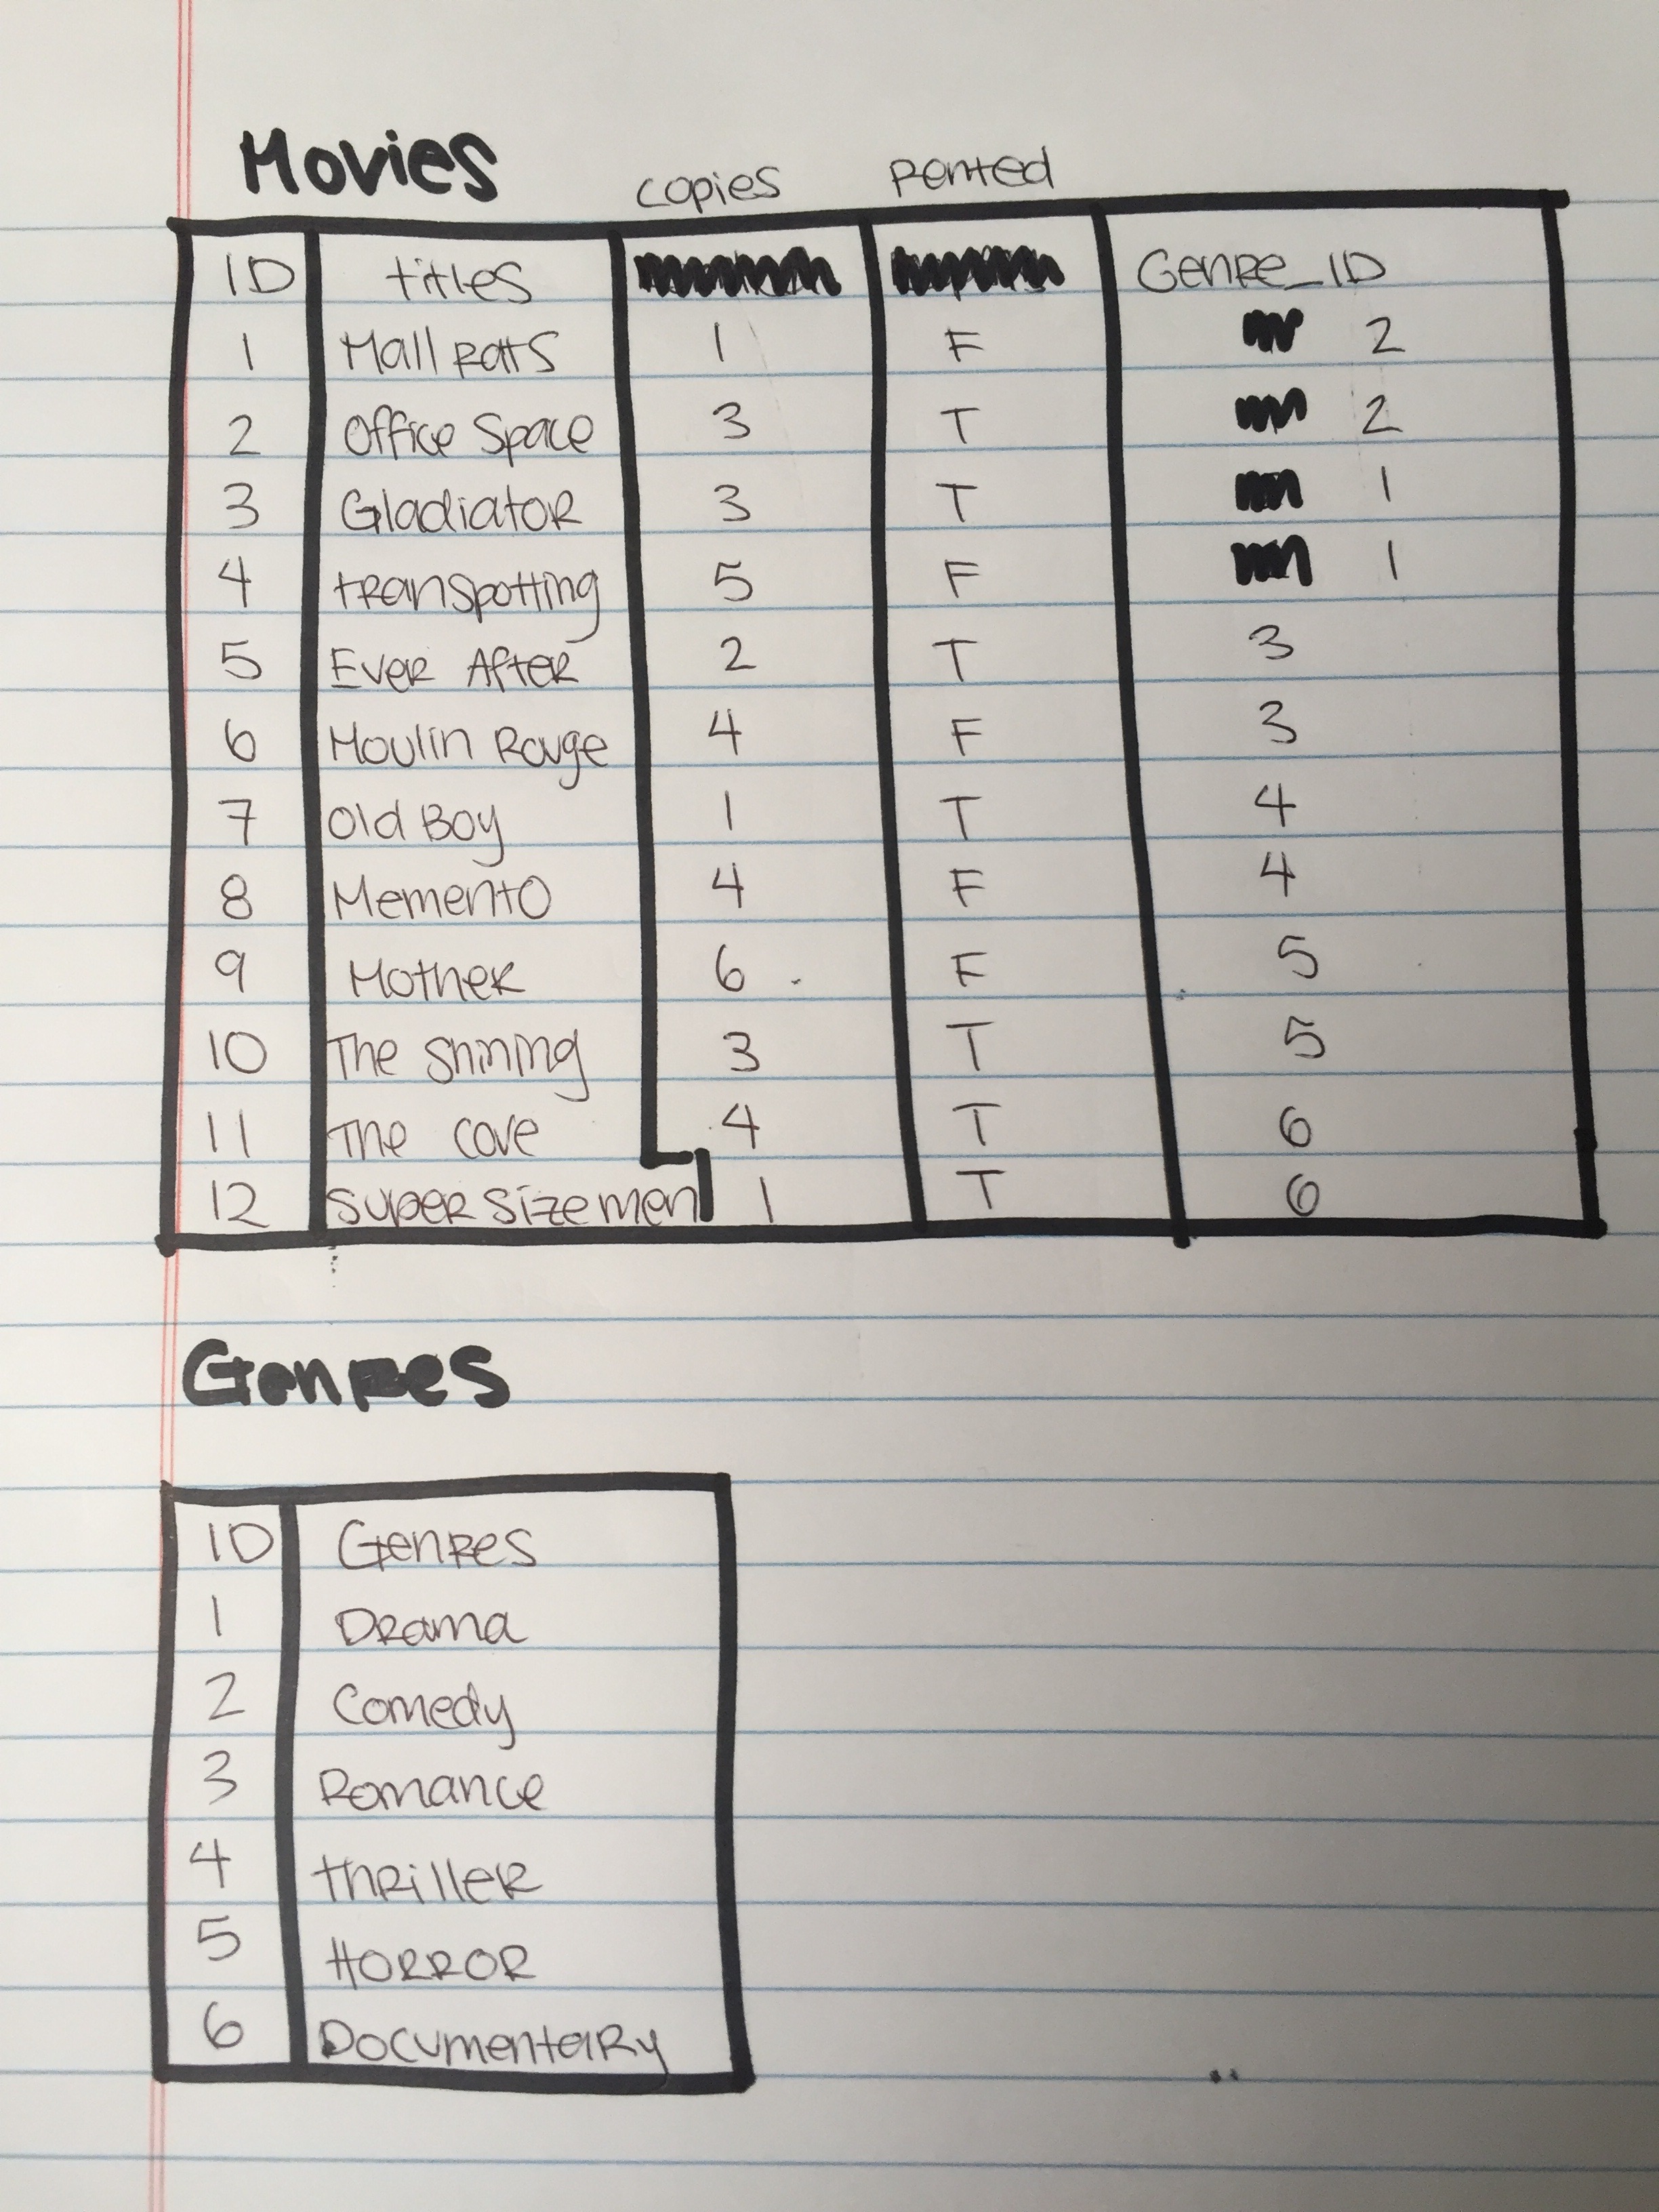 Movies copies Rented
ID titles Genre_ID
1 Mall Rats 1 F 2
2 Office Space 3 T 2
3 Gladiator 3 T 1
4 transpotting 5 F 1
5 Ever After 2 T 3
6 Moulin Rouge 4 F 3
7 Old Boy 1 T 4
8 Memento 4 F 4
9 Mother 6 F 5
10 The Shining 3 T 5
11 The cove 4 T 6
12 Super Size men 1 T 6
Genres
ID Genres
1 Drama
2 Comedy
3 Romance
4 thriller
5 HORROR
6 Documentary